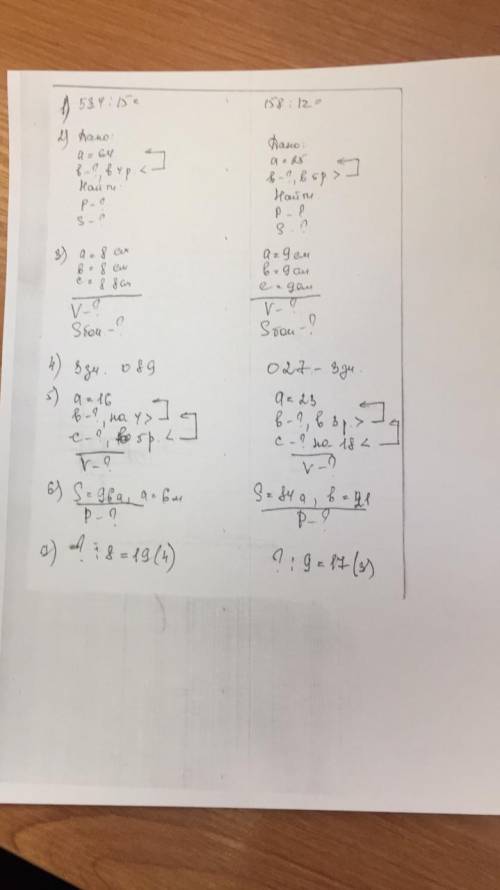 1) 534 : 15 =
2) Дано:
a = 64
в - ?, в 4 р. <
Найти
P - ?
S - ?
3) a = 8 см
в = 8 см
c = 8 см
V - ?
Sбок - ?
4) 3 дм. 089
5) a = 16
в - ?, на 4 >
c - ?, в 5 р. <
V - ?
6) S = 96а, a = 6м
P - ?
7) ? : 8 = 19 (4)
158 : 12 =
Дано:
a = 25
в - ?, в 5 р. >
Найти
P - ?
S - ?
a = 9 см
в = 9 см
c = 9 см
V - ?
Sбок - ?
027 - 3 дм.
a = 23
в - ?, в 3 р. >
c - ? на 18 <
V - ?
S = 84 а, в = 21
P - ?
? : 9 = 17 (3)